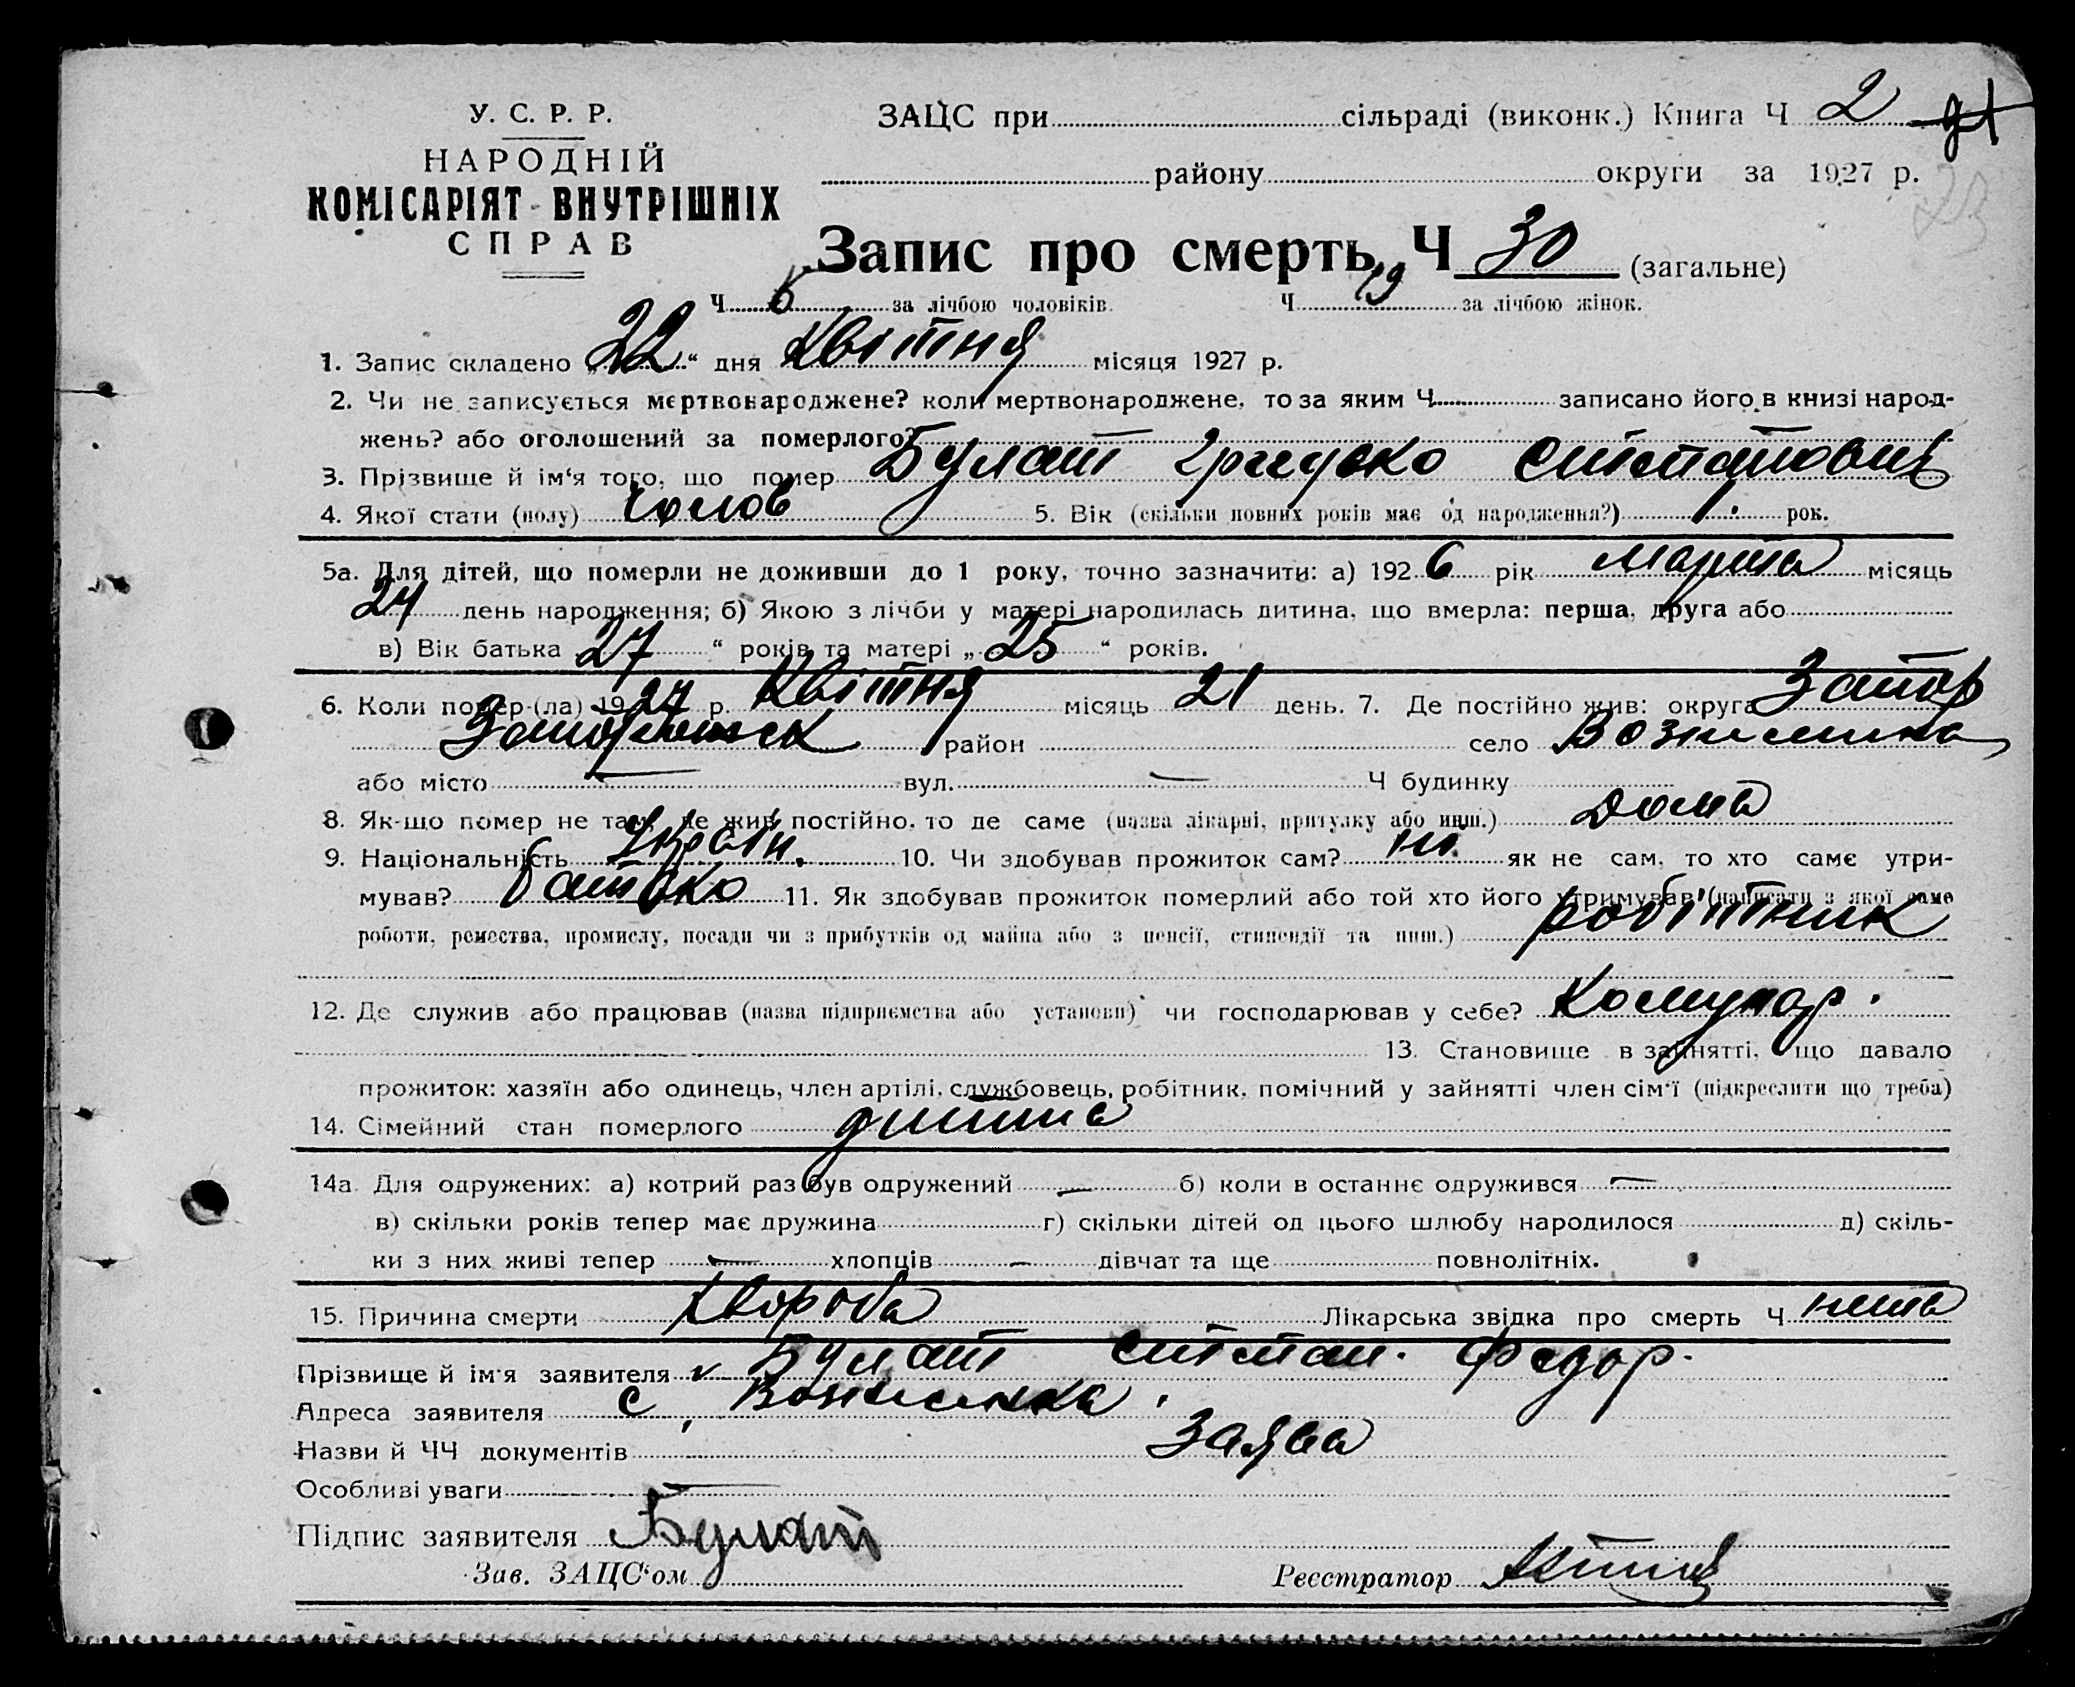 У. С. Р. Р.
НАРОДНІЙ
КОМІСАРІЯТ ВНУТРІШНІХ
СПРАВ
ЗАЦС при сільраді (виконк.) Книга Ч 2
району округи за 1927 р.
23
Запис про смерть Ч 30 (загальне)
Ч за лічбою чоловіків. Ч 19 за лічбою жінок.
1. Запис складено „22“ дня Квітня місяця 1927 р.
2. Чи не записується мертвонароджене? коли мертвонароджене, то за яким Ч записано його в книзі народ-
жень? або оголошений за померлого?
3. Прізвище й ім‘я того, що помер Булат Степанович
4. Якої стати (полу) Чолов 5. Вік (скільки повних років має од народження?) 1. рок.
5а. Для дітей, що померли не доживши до 1 року, точно зазначити: а) 1926 рік Марта місяць
24 день народження; б) Якою з лічби у матері народилась дитина, що вмерла: перша, друга або
в) Вік батька 27 “ років та матері „ 25 “ років.
6. Коли помер-(ла) 1927 р. Квітня місяць 21 день. 7. Де постійно жив: округа Запор
район село Вознесенка
або місто — вул. — Ч будинку
8. Як-що помер не там, де жив постійно, то де саме (назва лікарні, притулку або инш.) Дома
9. Національність Україн. 10. Чи здобував прожиток сам? ні. як не сам, то хто саме утри-
мував? батько 11. Як здобував прожиток померлий або той хто його утримував (написати з якої саме
роботи, ремества, промислу, посади чи з прибутків од майна або з пенсії, стипендії та инш.) робітник
12. Де служив або працював (назва підприємства або установи) чи господарював у себе? Комунар.
13. Становище в зайнятті, що давало
прожиток: хазяїн або одинець, член артілі, службовець, робітник, помічний у зайнятті член сім‘ї (підкреслити що треба)
14. Сімейний стан померлого дитина
14а. Для одружених: а) котрий раз був одружений — б) коли в останнє одружився —
в) скільки років тепер має дружина г) скільки дітей од цього шлюбу народилося д) скіль-
ки з них живі тепер — хлопців — дівчат та ще повнолітніх.
15. Причина смерти Хвороба Лікарська звідка про смерть Ч нема
Прізвище й ім‘я заявителя Булат Степан. Федор.
Адреса заявителя с. Вознесенка
Назви й ЧЧ документів Заява
Особливі уваги —
Підпис заявителя Булат
Зав. ЗАЦС‘ом Реєстратор